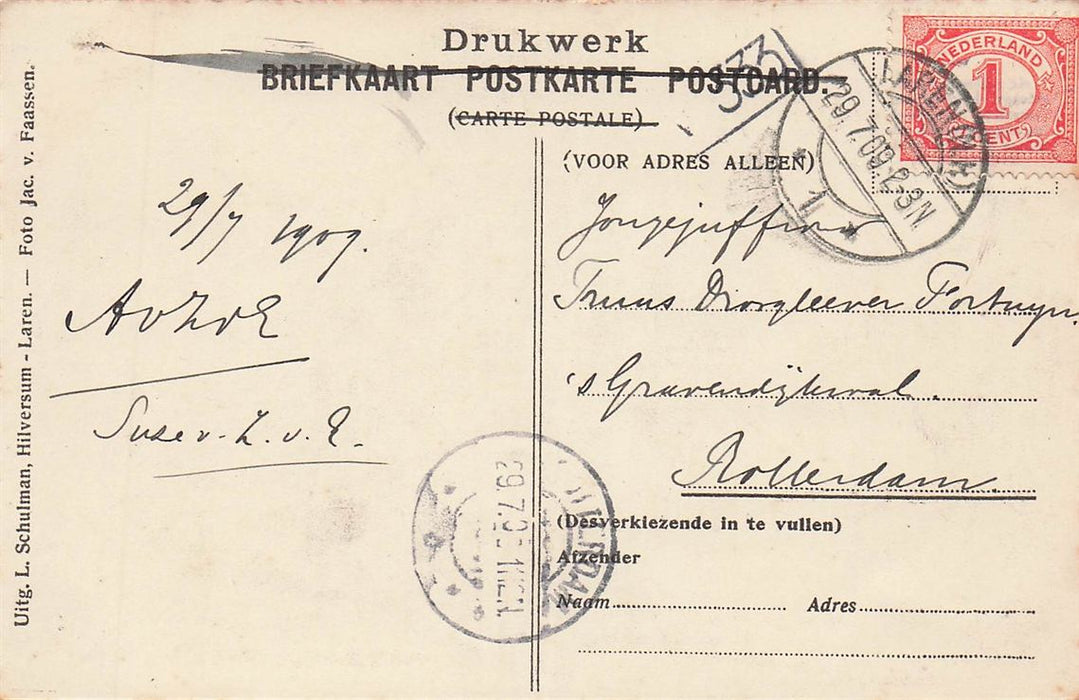 Drukwerk
BRIEFKAART POSTKARTE POSTCARD.
(CARTE POSTALE)
(VOOR ADRES ALLEEN)
333
NEDERLAND
1
CENT
LAREN (N.H)
29.7.09.2-3N
1
29/7 1909.
AvZvE
Suse v. Z. v. E.
Jongejuffrouw
Truus Droogleever Fortuyn.
's Gravendijkwal.
Rotterdam
29.7.0
(Desverkiezende in te vullen)
Afzender
Naam Adres
Uitg. L. Schulman, Hilversum - Laren. — Foto Jac. v. Faassen.